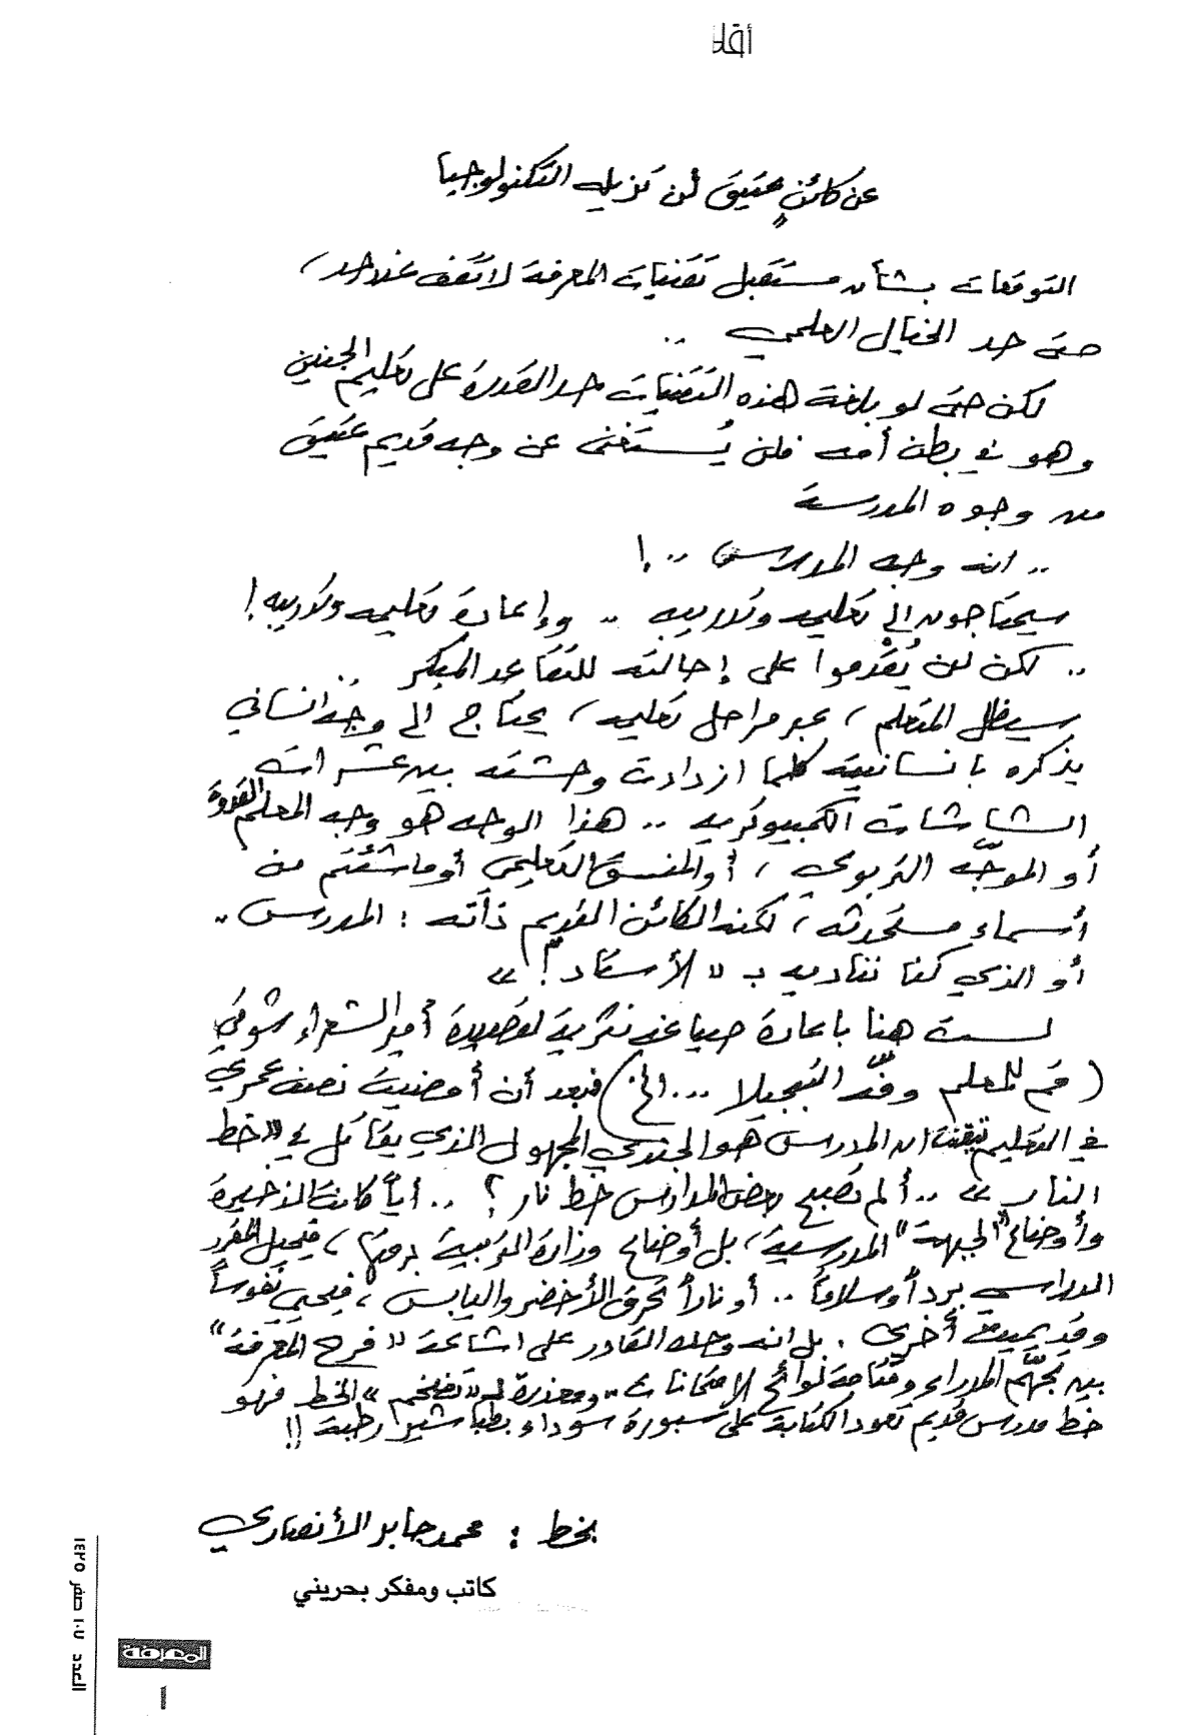 عن كائنٍ عتيق لن تزيله التكنولوجيا
التوقعات بشأن مستقبل تقنيات المعرفة لا تقف عند حد،
حتى حد الخيال العلمي ..
لكن حتى لو بلغت هذه التقنيات حد القدرة على تعليم الجنين
وهو في بطن أمه فلن يُستغنى عن وجه قديم عتيق
من وجوه المدرسة
.. انه وجه المدرس .. !
سيحتاجون إلى تعليمه وتدريبه .. وإعادة تعليمه وتدريبه !
.. لكن لن يُقْدموا على إحالته للتقاعد المبكر ..
سيظل المتعلم ، عبر مراحل تعليمه ، يحتاج الى وجه انساني
يذكره بانسانيته كلما ازدادت وحشته بين عشرات
الشاشات الكمبيوترية .. هذا الوجه هو وجه المعلم القدوة
أو الموجّه التربوي ، أو المنسق التعليمي أو ما شئتم من
أسماء مستحدثة ، لكنه الكائن القديم ذاته : المدرس ..
أو الذي كنا نناديه بـ « الأستاذ ! »
لست هنا باعادة صياغة نثرية لقصيدة أمير الشعراء شوقي
( قم للمعلم وفّه التبجيلا ... الخ ) فبعد أن أمضيت نصف عمري
في التعليم تيقنت ان المدرس هو الجندي المجهول الذي يقاتل في « خط
النار » .. ألم تصبح بعض المدارس خط نار ؟ .. أياً كانت الذخيرة
وأوضاع "الجبهة" المدرسية ، بل أوضاع وزارة التربية برمتها ، فيحيل المقرر
الدراسي برداً وسلاماً .. أو ناراً تحرق الأخضر واليابس ، فيحيي نفوساً
وقد يميت أخرى . بل انه وحده القادر على اشاعة « فرح المعرفة »
بين تجهّم المدراء وقتامة لوائح الامتحانات .. ومعذرة لـ « تضخم » الخط فهو
خط مدرس قديم تعود الكتابة على سبورة سوداء بطباشير رطبة !!
بخط : محمد جابر الأنصاري
كاتب ومفكر بحريني
العدد ١٠٧ صفر ١٤٢٥
المعرفة
١